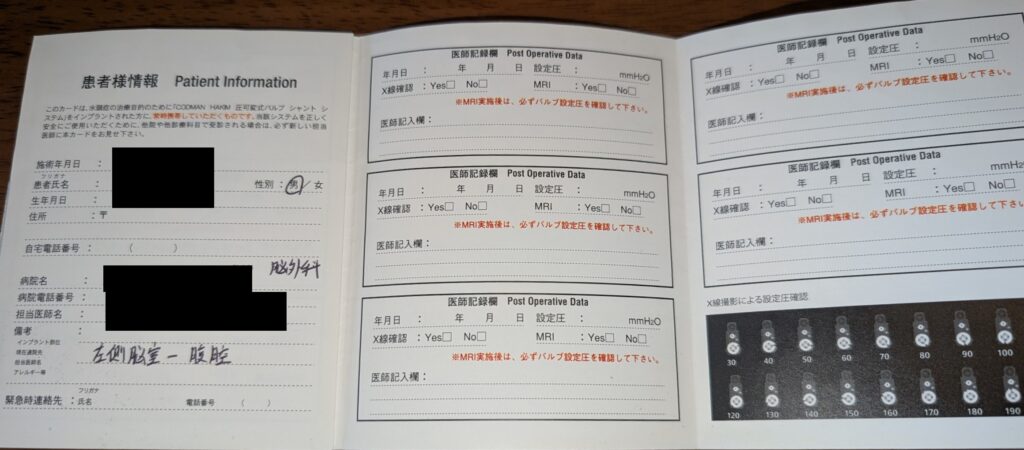 患者様情報 Patient Information
このカードは、水頭症の治療目的のために「CODMAN HAKIM 圧可変式バルブ シャント システム」をインプラントされた方に、常時携帯していただくものです。当該システムを正しく
安全にご使用いただくために、他院や他診療科目で受診される場合は、必ず新しい担当
医師に本カードをお見せ下さい。
施術年月日 :
フリガナ
患者氏名 : 性別 : 男 / 女
生年月日 :
住所 : 〒
自宅電話番号 : ( )
脳外科
病院名 :
病院電話番号 :
担当医師名 :
備考 :
インプラント部位
現在通院先
担当医師名
アレルギー等
左側脳室 − 腹腔
フリガナ
緊急時連絡先 : 氏名 電話番号 ( )
医師記録欄 Post Operative Data
年月日 : 年 月 日 設定圧 : mmH2O
X線確認 : Yes□ No□ MRI : Yes□ No□
※MRI実施後は、必ずバルブ設定圧を確認して下さい。
医師記入欄 :
医師記録欄 Post Operative Data
年月日 : 年 月 日 設定圧 : mmH2O
X線確認 : Yes□ No□ MRI : Yes□ No□
※MRI実施後は、必ずバルブ設定圧を確認して下さい。
医師記入欄 :
医師記録欄 Post Operative Data
年月日 : 年 月 日 設定圧 : mmH2O
X線確認 : Yes□ No□ MRI : Yes□ No□
※MRI実施後は、必ずバルブ設定圧を確認して下さい。
医師記入欄 :
医師記録欄 Post Operative Data
年月日 : 年 月 日 設定圧 : mmH2O
X線確認 : Yes□ No□ MRI : Yes□ No□
※MRI実施後は、必ずバルブ設定圧を確認して下さい。
医師記入欄 :
医師記録欄 Post Operative Data
年月日 : 年 月 日 設定圧 : mmH2O
X線確認 : Yes□ No□ MRI : Yes□ No□
※MRI実施後は、必ずバルブ設定圧を確認して下さい。
医師記入欄 :
X線撮影による設定圧確認
30 40 50 60 70 80 90 100
120 130 140 150 160 170 180 190